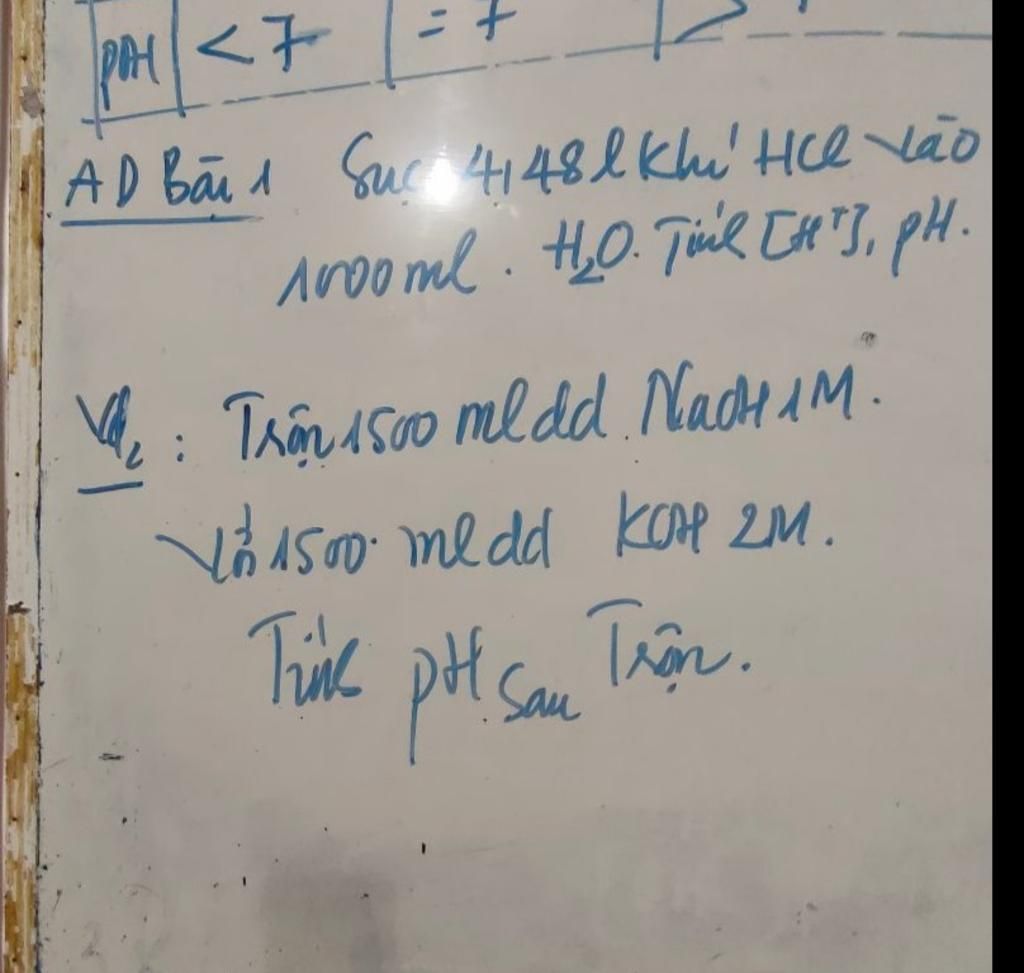 pH < 7 = 7 >
AD Bài 1 Sục 4,48 l khí HCl vào
1000 ml. H₂O. Tính [H⁺], pH.
Vd₂ : Trộn 1500 ml dd NaOH 1M.
Với 1500 ml dd KOH 2M.
Tính pH sau Trộn.